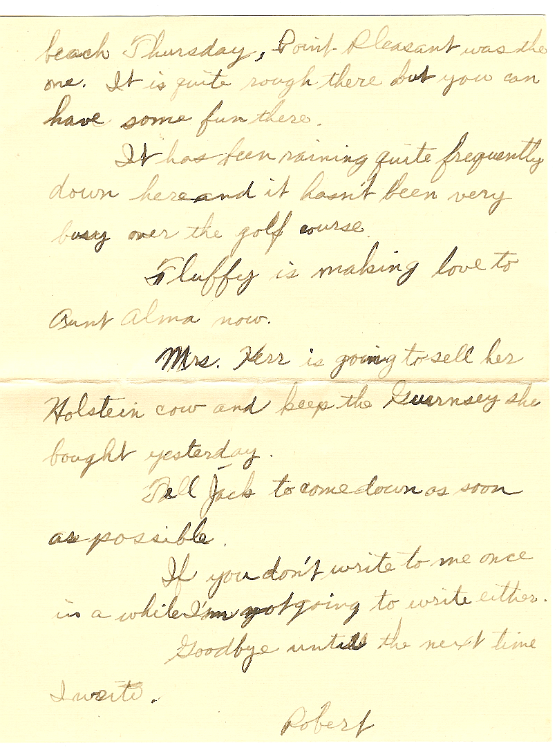 beach Thursday, Point Pleasant was the
one. It is quite rough there but you can
have some fun there.
It has been raining quite frequently
down here and it hasn't been very
busy over the golf course.
Fluffy is making love to
Aunt Alma now.
Mrs. Kerr is going to sell her
Holstein cow and keep the Guernsey she
bought yesterday.
Tell Jack to come down as soon
as possible.
If you don't write to me once
in a while I'm not going to write either.
Goodbye until the next time
I write.
Robert